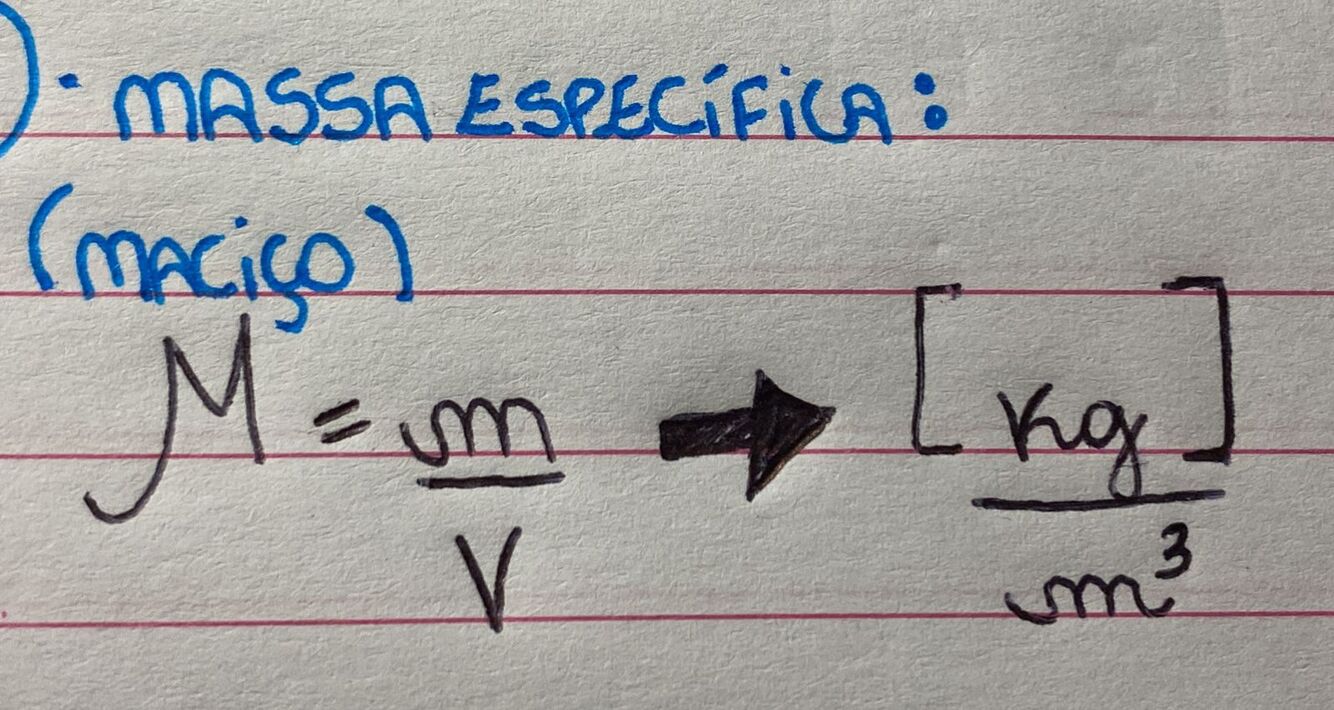 · MASSA ESPECÍFICA:
(MACIÇO)
μ = m/V → [kg]/m³